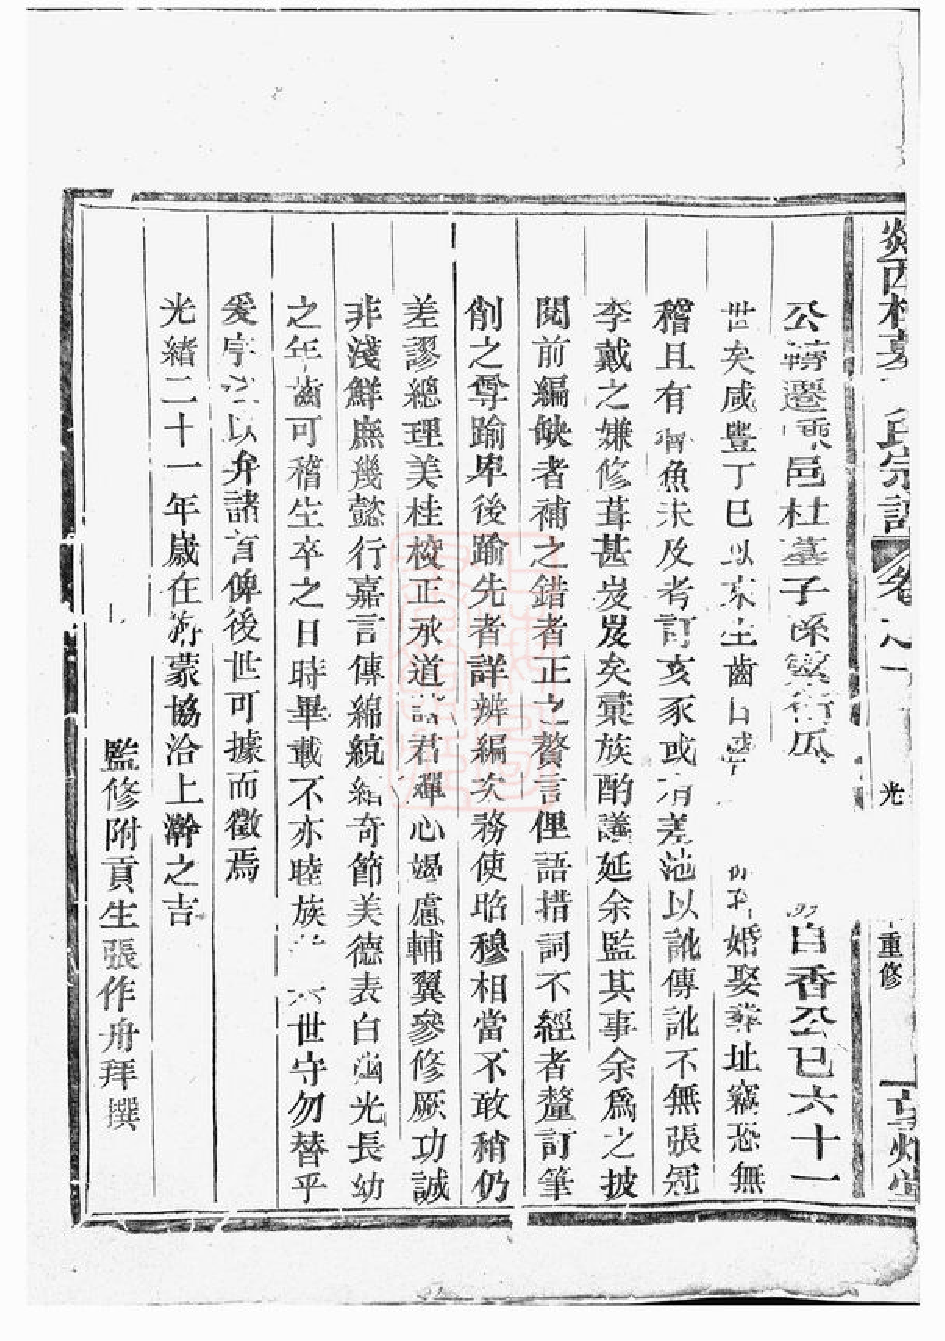 氏宗譜
卷之一
光
重修
公轉遷 邑杜墓子孫繁衍瓜 自香公已六十一
世矣咸豐丁巳以來生齒日 婚娶葬址竊恐無
稽且有 魚未及考訂亥豕或有差池以訛傳訛不無張冠
李戴之嫌修葺甚岌岌矣彙族酌議延余監其事余爲之披
閱前編缺者補之錯者正之贅言俚語措詞不經者釐訂筆
削之尊踰卑後踰先者詳辨編次務使昭穆相當不敢稍仍
差謬總理美桂校正承道 君殫心竭慮輔翼參修厥功誠
非淺鮮庶幾懿行嘉言傳綿統紀奇節美德表白幽光長幼
之年齒可稽生卒之日時畢載不亦睦族 世守勿替乎
爰 以弁諸首俾後世可據而徵焉
光緒二十一年歲在旃蒙協洽上澣之吉
監修附貢生張作舟拜撰